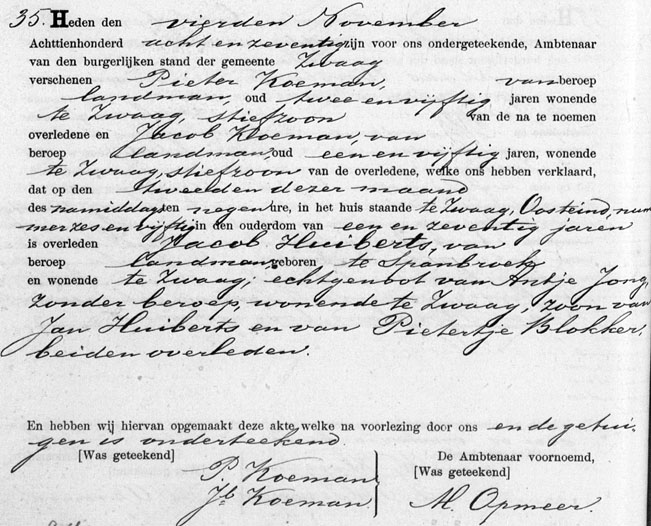 35. Heden den vierden November
Achttienhonderd acht en zeventig zijn voor ons ondergeteekende, Ambtenaar
van den burgerlijken stand der gemeente Zwaag
verschenen Pieter Koeman, van beroep
landman, oud twee en vijftig jaren wonende
te Zwaag, stiefzoon van de na te noemen
overledene en Jacob Koeman, van
beroep landman, oud een en vijftig jaren, wonende
te Zwaag, stiefzoon van de overledene, welke ons hebben verklaard,
dat op den tweeden dezer maand
des namiddags ten negen ure, in het huis staande te Zwaag, Oosteind, num
mer zes en vijftig in den ouderdom van een en zeventig jaren
is overleden Jacob Huiberts, van
beroep landman, geboren te Spanbroek
en wonende te Zwaag; echtgenoot van Antje Jong,
zonder beroep, wonende te Zwaag, zoon van
Jan Huiberts en van Pietertje Blokker,
beiden overleden.
En hebben wij hiervan opgemaakt deze akte welke na voorlezing door ons en de getui-
gen is onderteekend
[Was geteekend] De Ambtenaar voornoemd,
P. Koeman [Was geteekend]
Jb Koeman M. Opmeer.